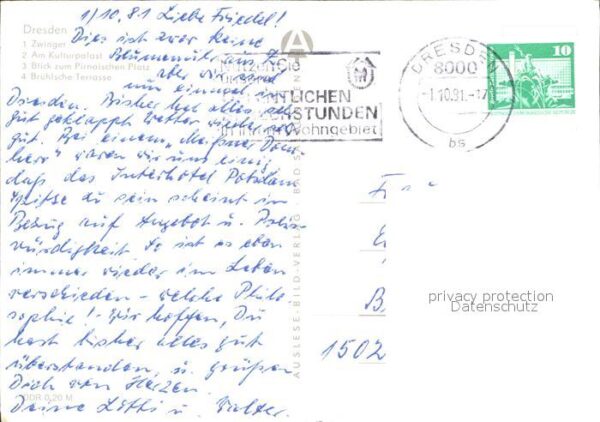 1/10.81 Liebe Friedel!
Dresden
Dies ist zwar keine
1 Zwinger
Blumenuhr aus
2 Am Kulturpalast
aber wir sind
3 Blick zum Pirnaischen Platz
nun einmal in
4 Brühlsche Terrasse
Dresden. Bisher hat alles
gut geklappt, Wetter wieder
gut. Bei einem „Meißner Dom
herr“ waren wir uns einig
daß das Interhotel Potsdam
Spitze zu sein scheint in
Bezug auf Angebot u. Preis-
würdigkeit. So ist es eben
immer wieder im Leben
verschieden - welche Philo
sophie! - Wir hoffen, Du
hast bisher alles gut
überstanden, u. grüßen
Dich von Herzen
Deine Lotti u. Walter.
DDR 0,20 M
AUSLESE-BILD-VERLAG · BAD
Nutzen Sie
SPRECHSTUNDEN
in Ihrem Wohngebiet
DRESDEN
8000
-1.10.81.-17
bs
10
1502
privacy protection
Datenschutz